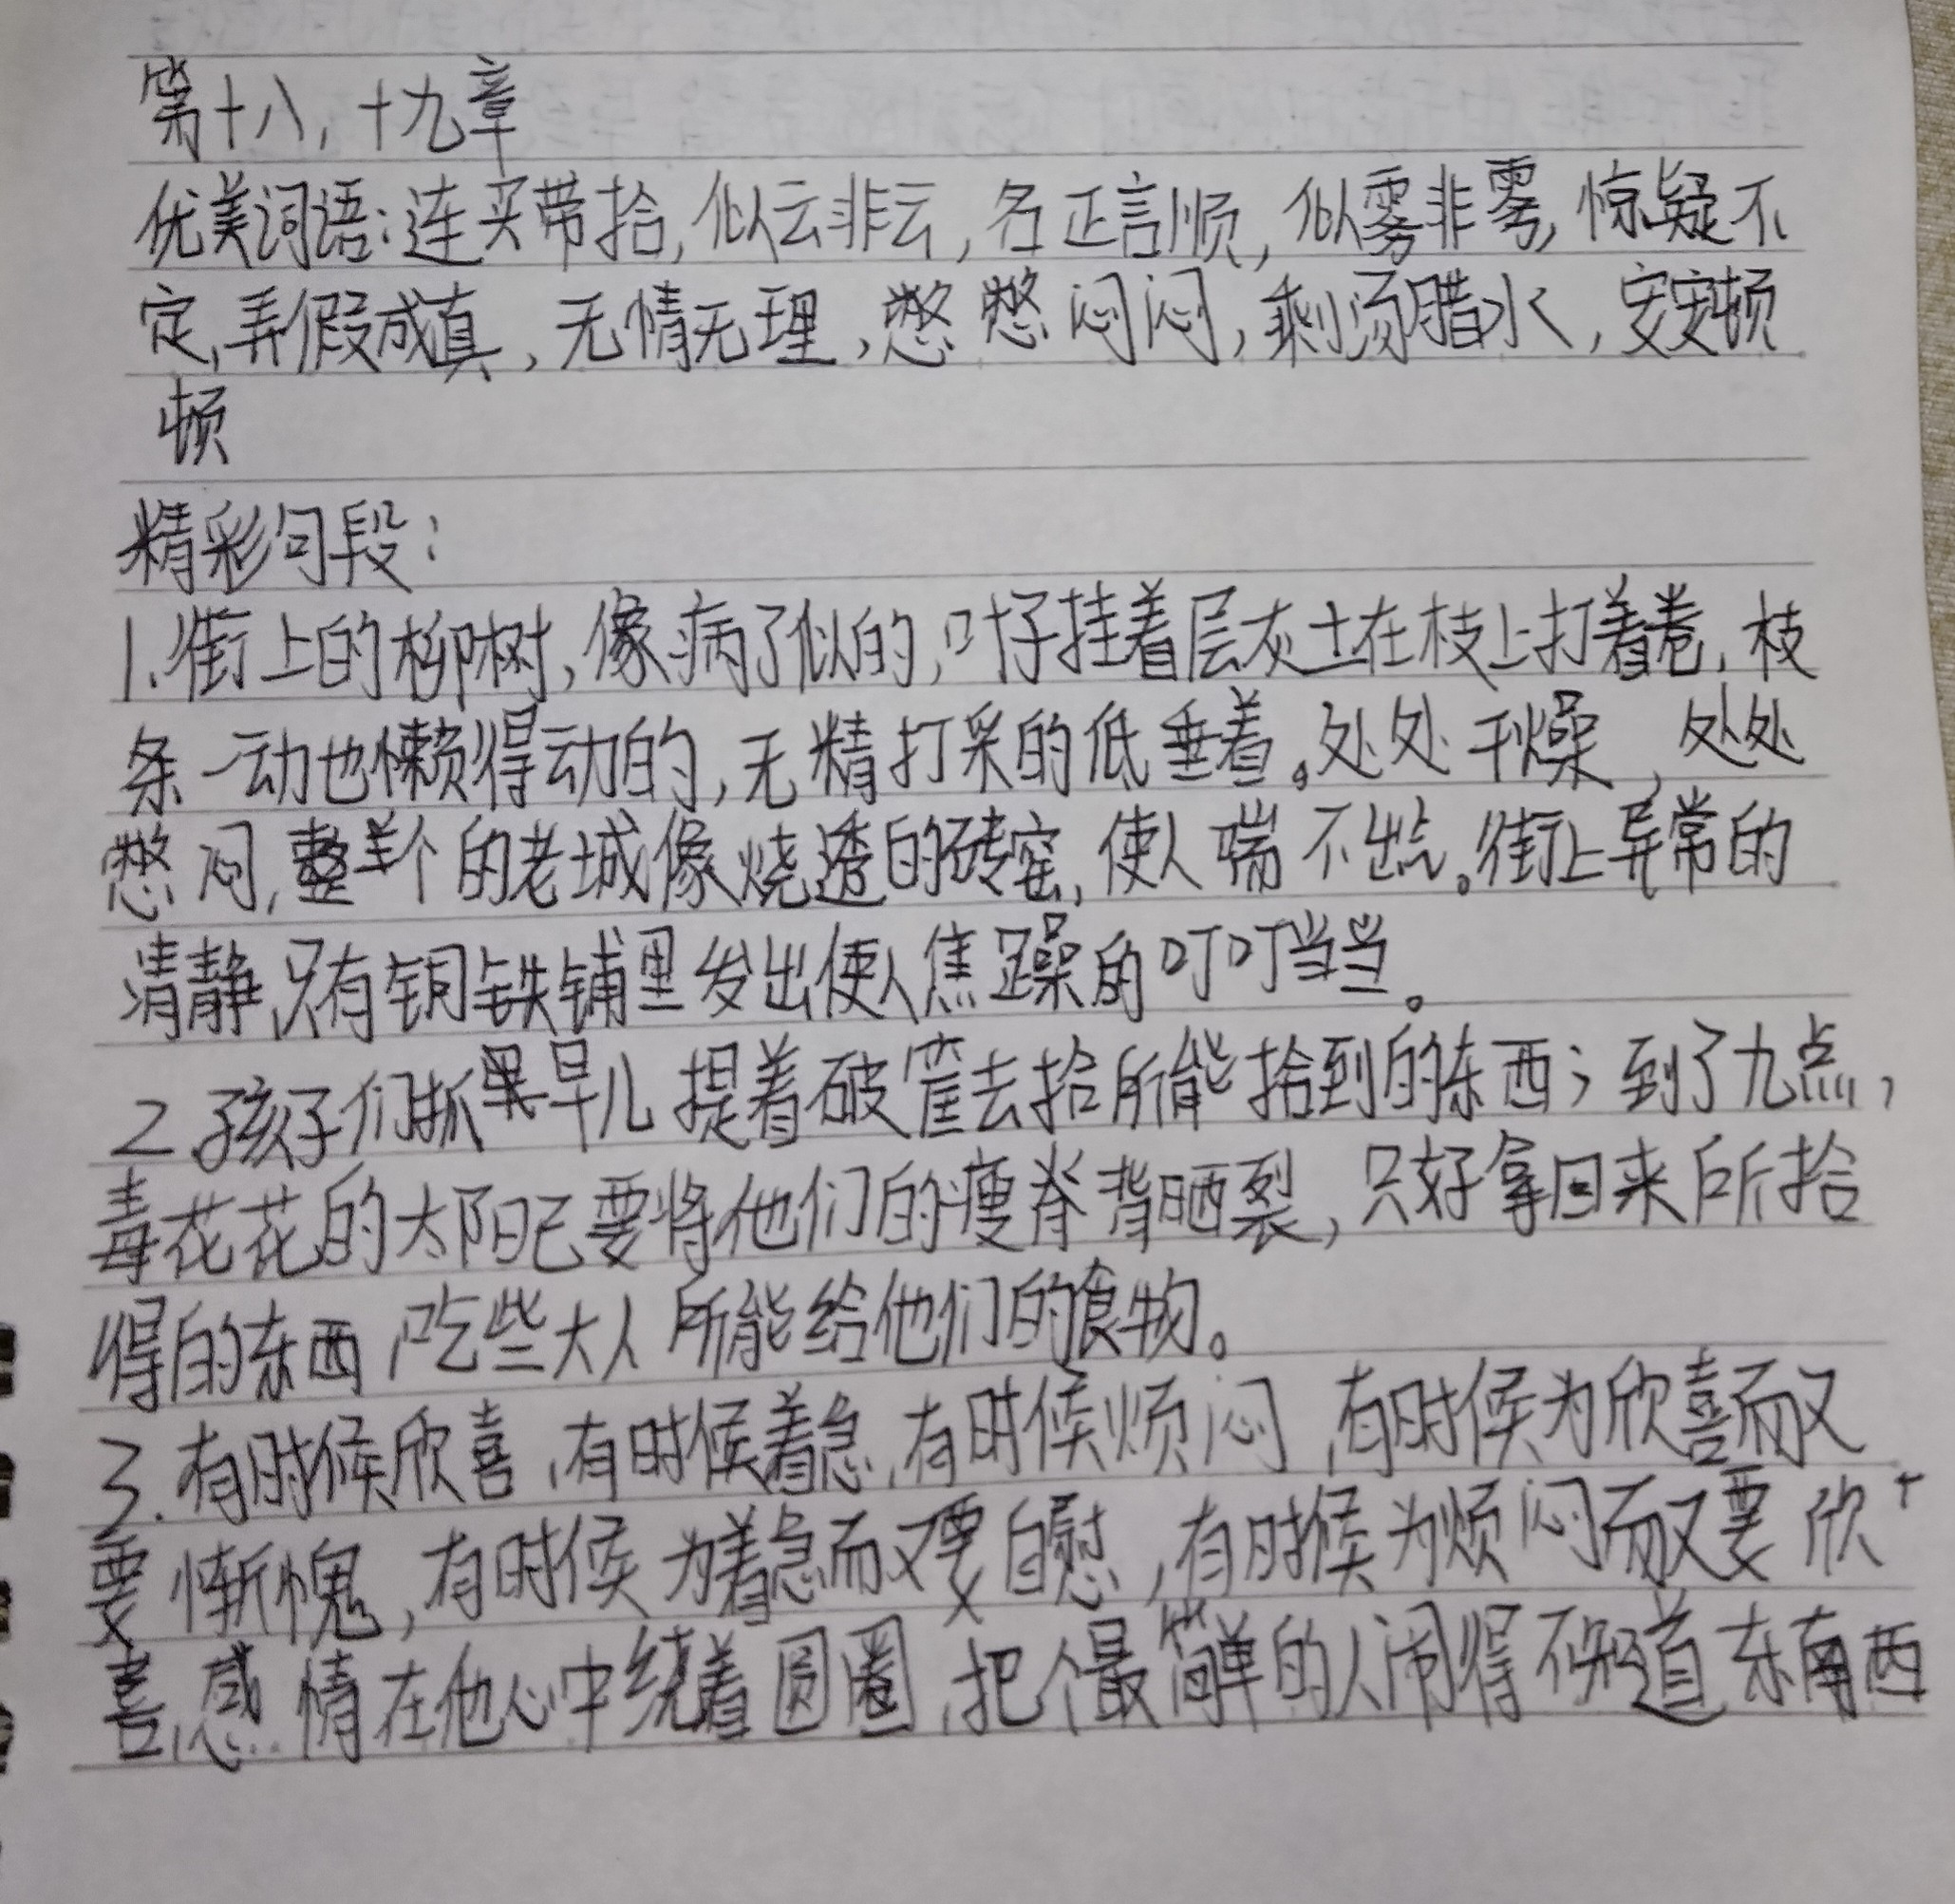 第十八，十九章
优美词语：连买带拾，似云非云，名正言顺，似雾非雾，惊疑不
定，弄假成真，无情无理，憋憋闷闷，剩汤腊水，安安顿
顿
精彩句段：
1.街上的柳树，像病了似的，叶子挂着层灰土在枝上打着卷，枝
条一动也懒得动的，无精打采的低垂着。处处干燥，处处
憋闷，整个的老城像烧透的砖窑，使人喘不出气。街上异常的
清静，只有铜铁铺里发出使人焦躁的叮叮当当。
2.孩子们抓早儿提着破筐去拾所能拾到的东西；到了九点，
毒花花的太阳已要将他们的瘦脊背晒裂，只好拿回来所拾
得的东西，吃些大人所能给他们的食物。
3.有时候欣喜，有时候着急，有时候烦闷，有时候为欣喜而又
要惭愧，有时候为着急而又要自慰，有时候为烦闷而又要欣
喜，感情在他心中绕着圆圈，把个最简单的人闹得不知道东南西